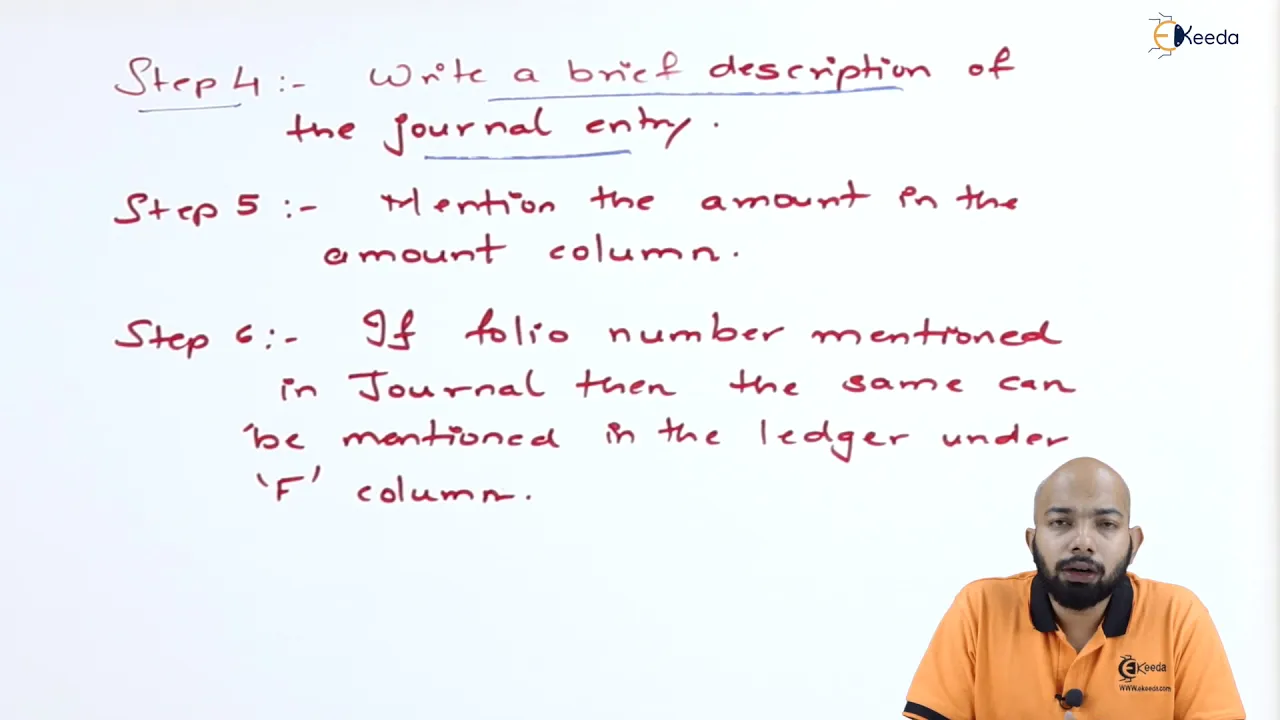 EKeeda
Step 4 :- Write a brief description of
the journal entry.
Step 5 :- Mention the amount in the
amount column.
Step 6 :- If folio number mentioned
in Journal then the same can
be mentioned in the ledger under
'F' column.
EKeeda
www.ekeeda.com